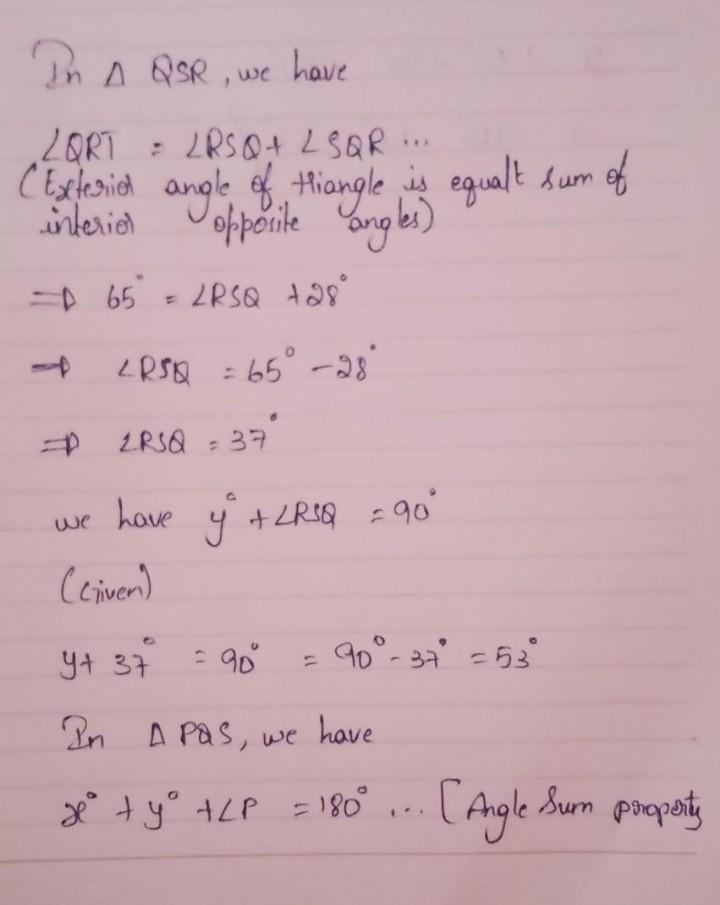 In Δ QSR, we have
∠QRT = ∠RSQ + ∠SQR ...
(Exterior angle of triangle is equalt sum of
interior opposite angles)
⇒ 65° = ∠RSQ + 28°
⇒ ∠RSQ = 65° - 28°
⇒ ∠RSQ = 37°
we have y° + ∠RSQ = 90°
(Given)
y + 37° = 90° = 90° - 37° = 53°
In Δ PQS, we have
x° + y° + ∠P = 180° ... [Angle Sum property